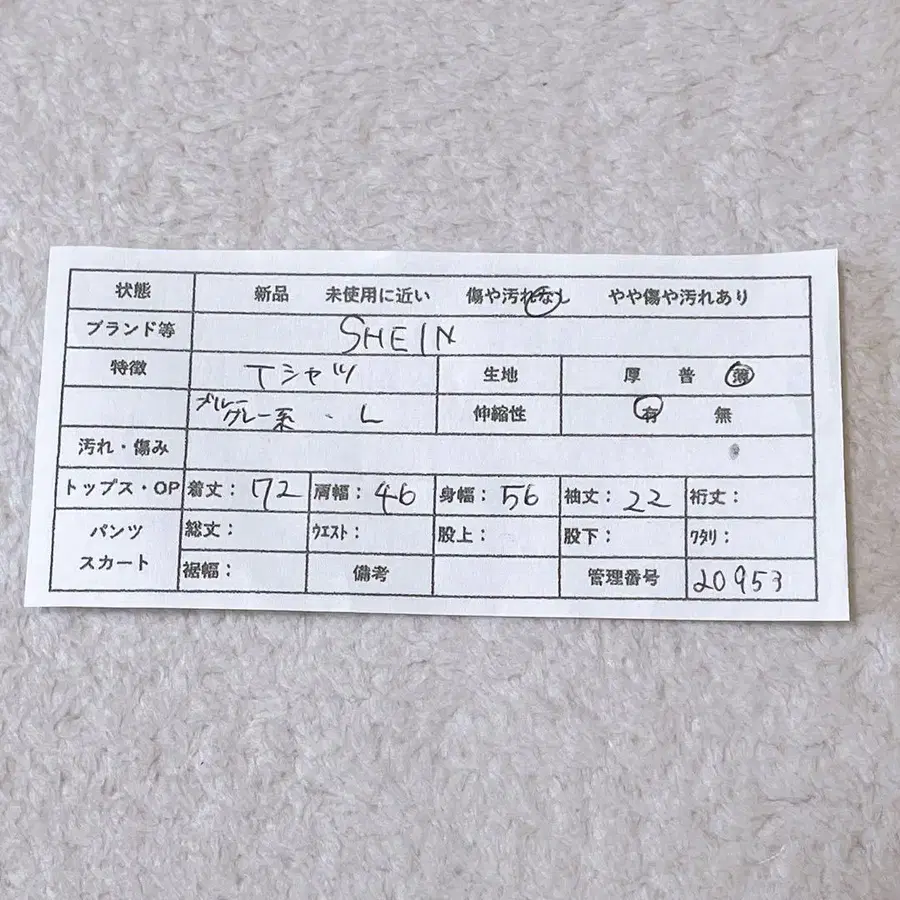 状態 新品 未使用に近い 傷や汚れなし やや傷や汚れあり
ブランド等 SHEIN
特徴 Tシャツ 生地 厚 普 薄
ブルーグレー系・L 伸縮性 有 無
汚れ・傷み
トップス・OP 着丈：72 肩幅：46 身幅：56 袖丈：22 裄丈：
パンツ 総丈： ウエスト： 股上： 股下： ワタリ：
スカート 裾幅： 備考 管理番号 20953